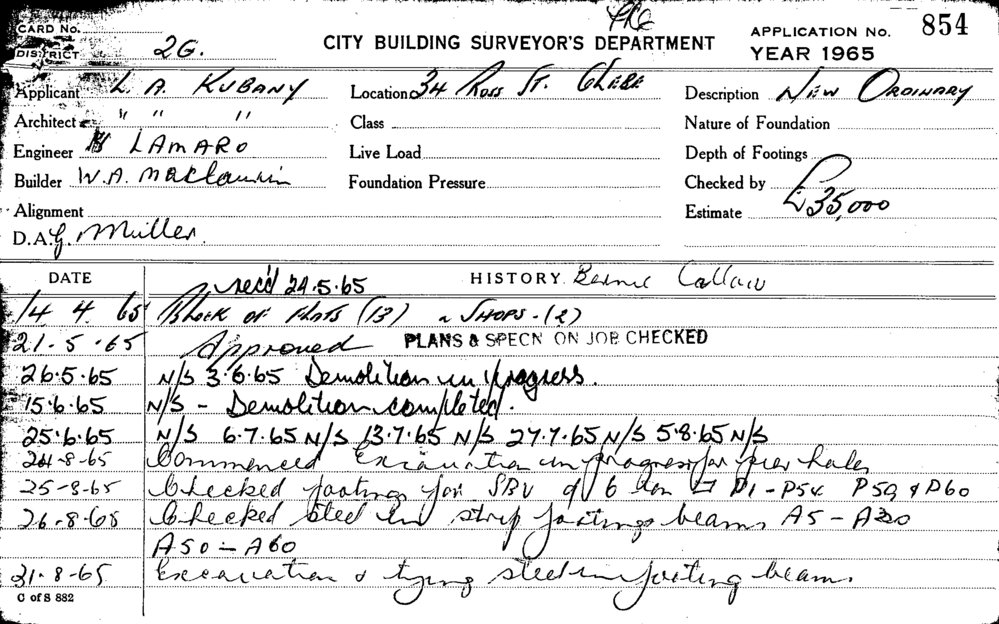 CARD No.
DISTRICT 2G.
CITY BUILDING SURVEYOR'S DEPARTMENT
APPLICATION No. 854
YEAR 1965
Applicant L. A. KUBANY
Location 34 Ross St. GLEBE
Description NEW ORDINARY
Architect " " "
Class
Nature of Foundation
Engineer LAMARO
Live Load
Depth of Footings
Builder W.A. Maclaurin
Foundation Pressure
Checked by
Alignment
Estimate £35,000
D.A. G. Muller.
DATE
rec'd 24.5.65
HISTORY
14 4 65 Block of Flats (13) SHOPS - (2)
21.5.65 Approved PLANS & SPECN ON JOB CHECKED
26.5.65 N/S 3.6.65 Demolition in progress.
15.6.65 N/S - Demolition completed.
25.6.65 N/S 6.7.65 N/S 13.7.65 N/S 27.7.65 N/S 5.8.65 N/S
24-8-65 Commenced Excavation in progress for pier holes
25-8-65 Checked footings for SBV of 6 ton P1-P54 P59 & P60
26-8-65 Checked steel in strip footings beams A5 - A30
A50 - A60
31-8-65 Excavation & tying steel in footing beams.
C of S 882